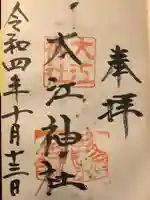 奉拝
大江神社
令和四年十月十三日